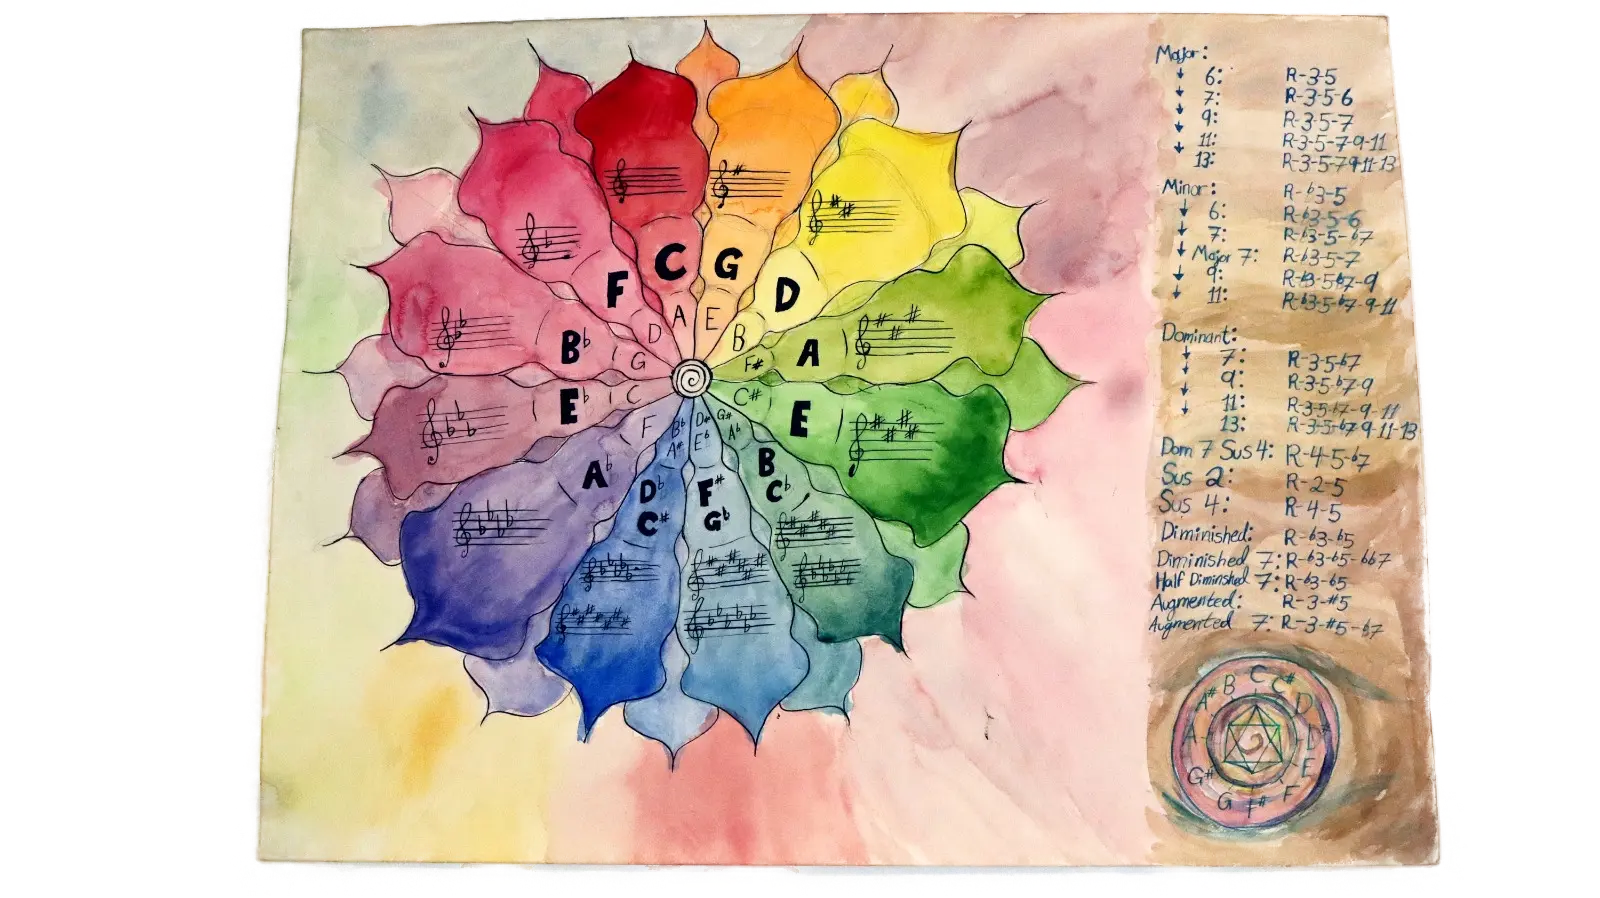 C
G
D
A
E
B
C♭
F#
G♭
D♭
C#
A♭
E♭
B♭
F
A
E
B
F#
C#
G#
A♭
D#
E♭
B♭
A#
F
C
G
D
Major:
6: R-3-5
7: R-3-5-6
9: R-3-5-7
11: R-3-5-7-9-11
13: R-3-5-7-9-11-13
Minor: R-♭3-5
6: R-♭3-5-6
7: R-♭3-5-♭7
Major 7: R-♭3-5-7
9: R-♭3-5-♭7-9
11: R-♭3-5-♭7-9-11
Dominant:
7: R-3-5-♭7
9: R-3-5-♭7-9
11: R-3-5-♭7-9-11
13: R-3-5-♭7-9-11-13
Dom 7 Sus 4: R-4-5-♭7
Sus 2: R-2-5
Sus 4: R-4-5
Diminished: R-♭3-♭5
Diminished 7: R-♭3-♭5-♭♭7
Half Diminished 7: R-♭3-♭5
Augmented: R-3-#5
Augmented 7: R-3-#5-♭7
C
C#
D
D#
E
F
F#
G
G#
A
A#
B